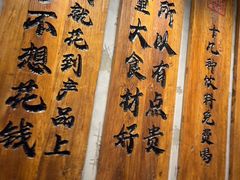 不想花钱
就花到产品上
里大食材好
所以有点贵
十几种饮料免费喝